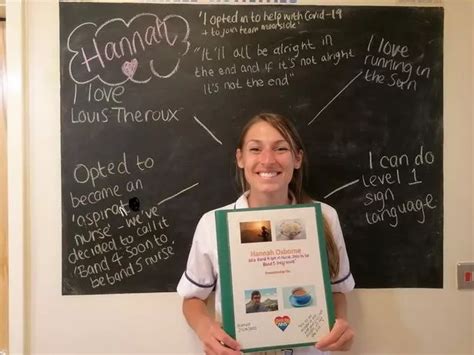 Hannah
'I opted in to help with Covid-19
+ to join team
"It'll all be alright in
the end and if it's not alright
it's not the end"
I love
running in
the sun
I love
Louis Theroux
Opted to
become an
'aspirant
nurse' - we've
decided to call it
'Band 4 soon to
be band 5 nurse
I can do
level 1
sign
language
Hannah Osborne